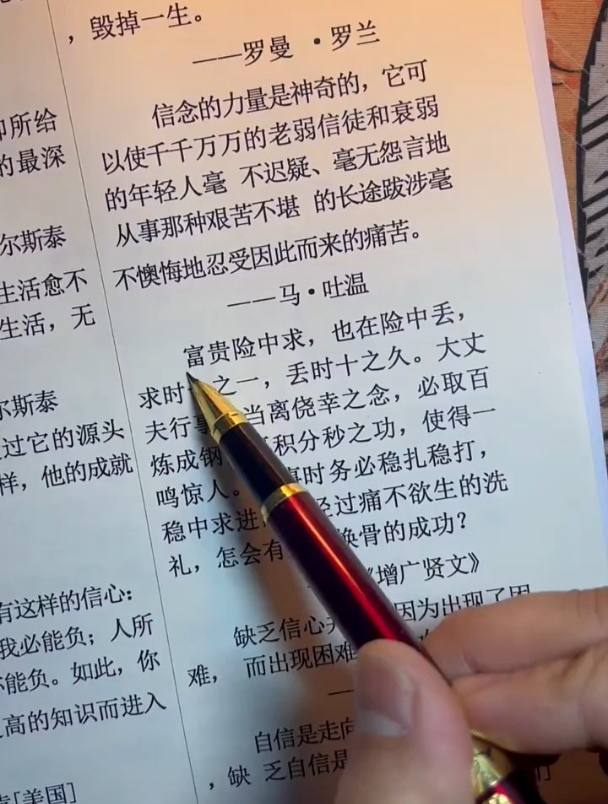 ，毁掉一生。
——罗曼·罗兰
信念的力量是神奇的，它可
以使千千万万的老弱信徒和衰弱
的年轻人毫 不迟疑、毫无怨言地
从事那种艰苦不堪 的长途跋涉毫
不懊悔地忍受因此而来的痛苦。
——马·吐温
富贵险中求，也在险中丢，
求时 之一，丢时十之久。大丈
夫行事 当离侥幸之念，必取百
炼成钢 积分秒之功，使得一
鸣惊人。 事时务必稳扎稳打，
稳中求进 经过痛不欲生的洗
礼，怎会有 换骨的成功？
《增广贤文》
缺乏信心 因为出现了困
难， 而出现困难
自信是走向
，缺 乏自信是
们
却所给
的最深
尔斯泰
生活愈不
生活，无
尔斯泰
过它的源头
样，他的成就
有这样的信心：
我必能负；人所
不能负。如此，你
高的知识而进入
[美国]